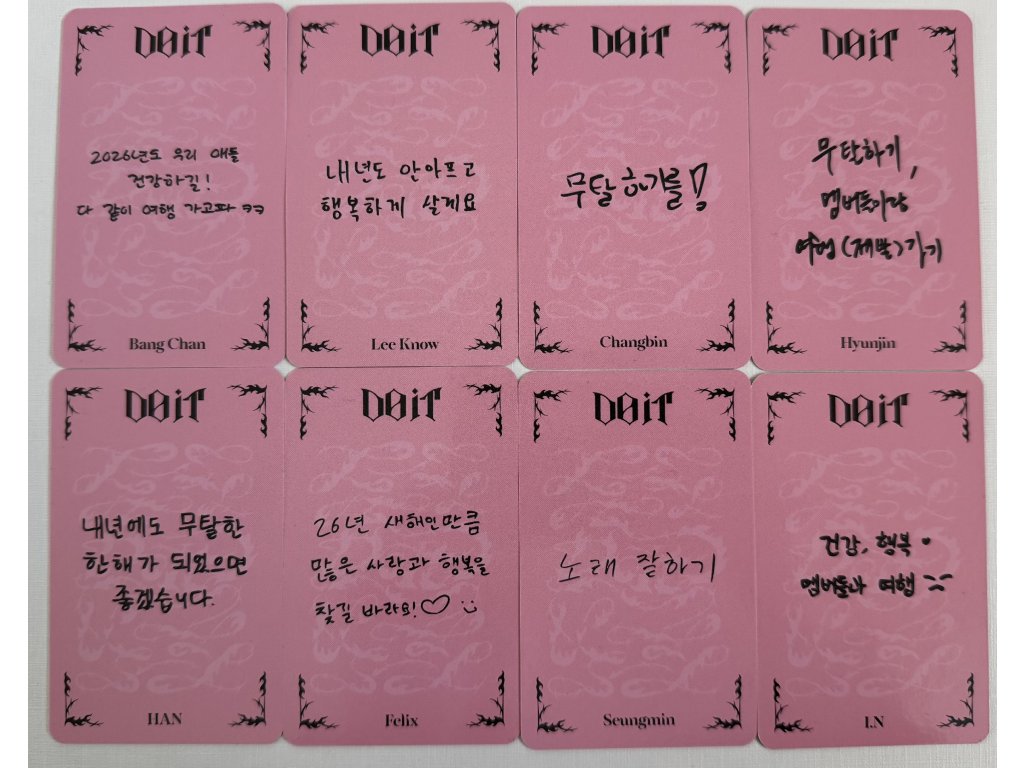 DØiT
2026년도 우리 애들
건강하길!
다 같이 여행 가고파 ㅋㅋ
Bang Chan
DØiT
내년도 안아프고
행복하게 살게요
Lee Know
DØiT
무탈하기를!
Changbin
DØiT
무탄하기,
멤버들이랑
여행(제발)가기
Hyunjin
DØiT
내년에도 무탈한
한해가 되었으면
좋겠습니다.
HAN
DØiT
26년 새해인만큼
많은 사랑과 행복을
찾길 바라요!♡
Felix
DØiT
노래 잘하기
Seungmin
DØiT
건강, 행복
멤버들과 여행
I.N